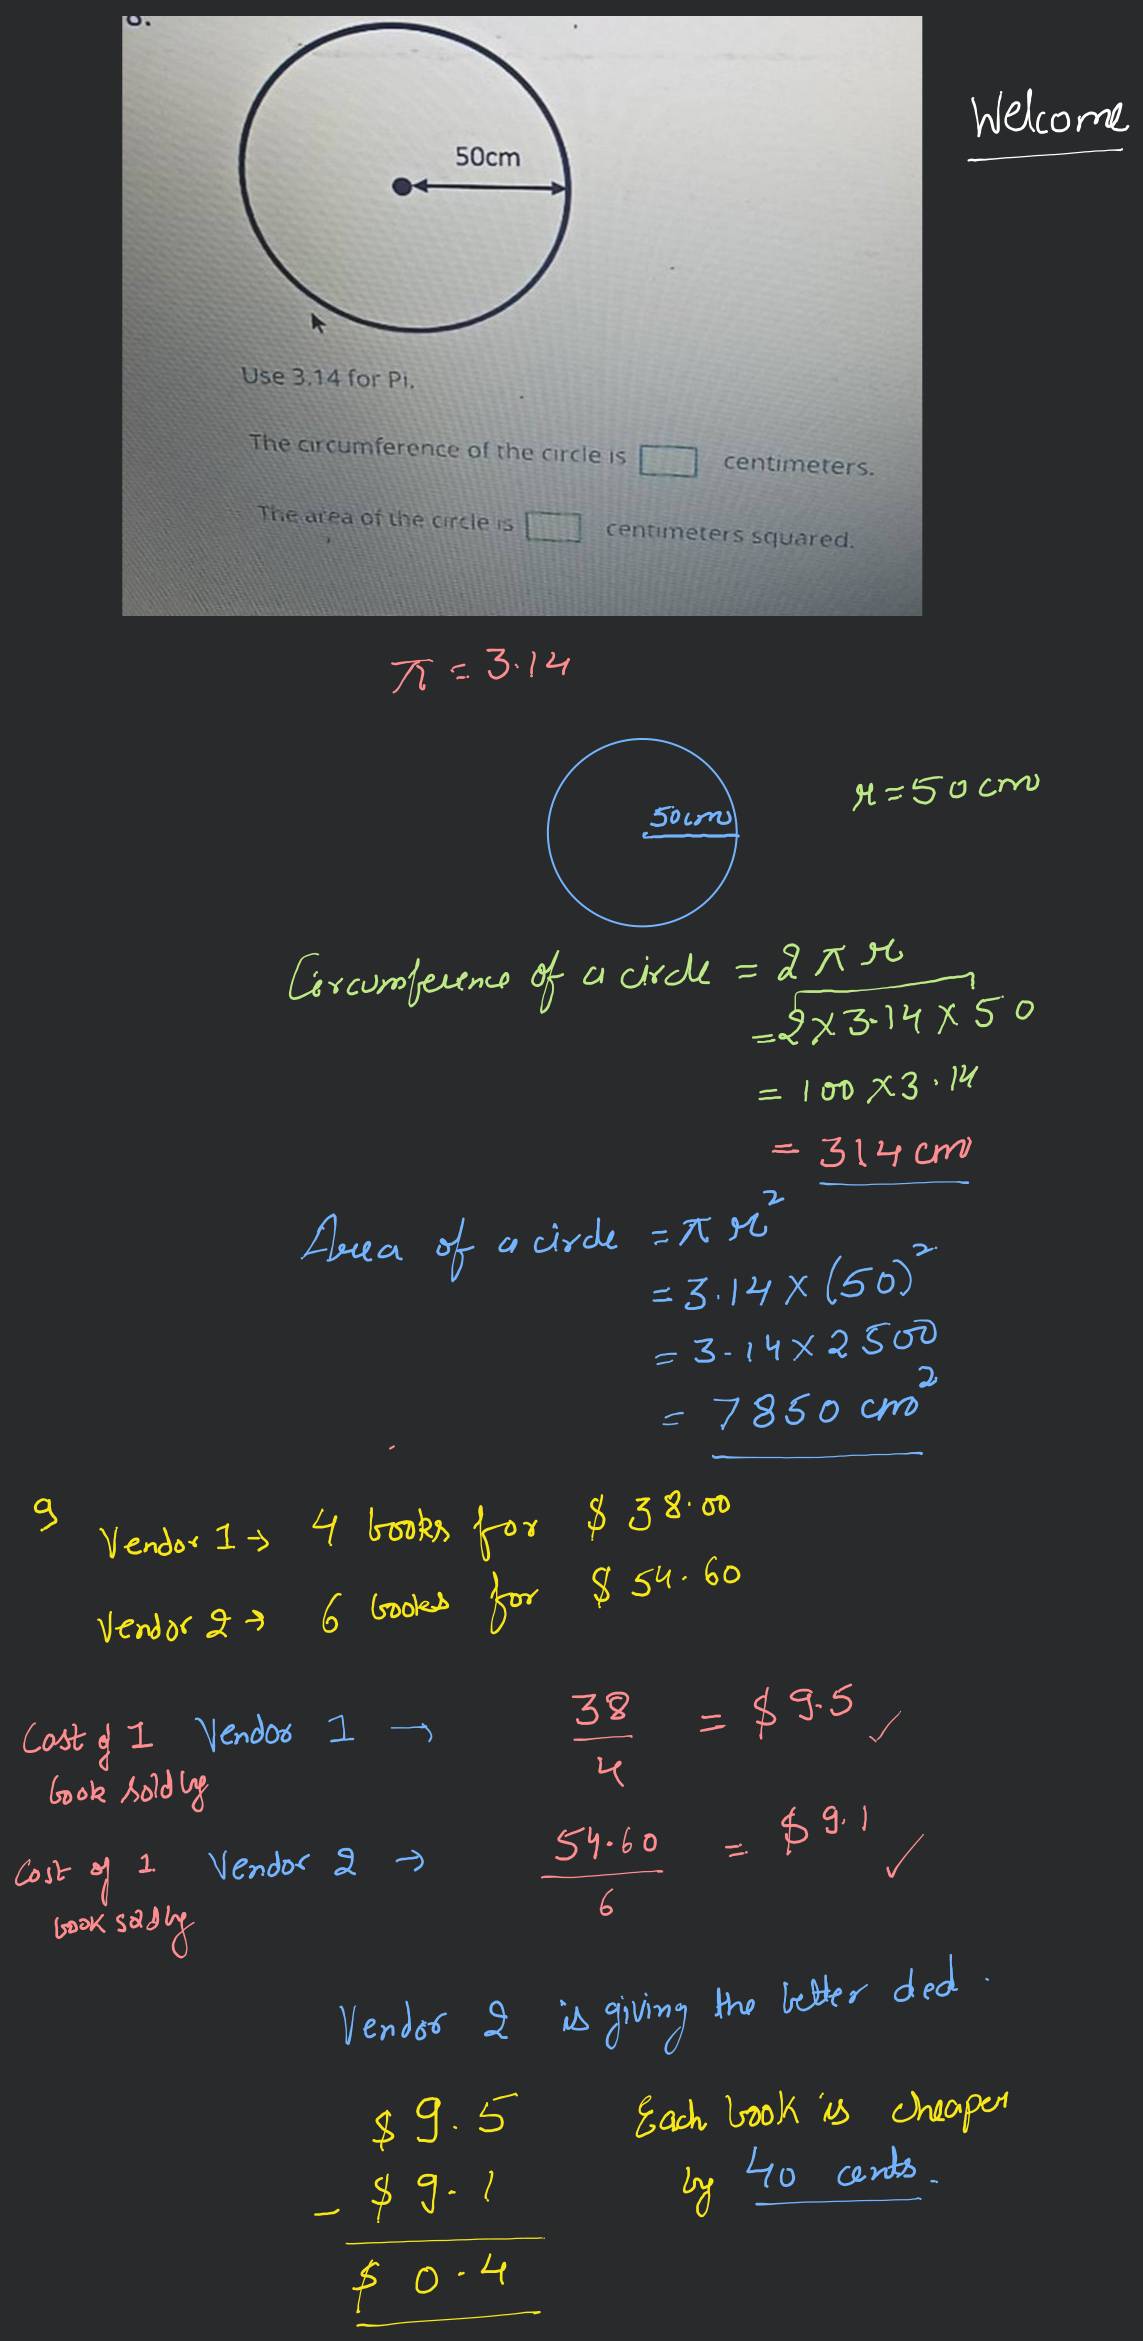 8.
Welcome
50cm
Use 3.14 for Pi.
The circumference of the circle is centimeters.
The area of the circle is centimeters squared.
π = 3.14
50cm
r = 50 cm
Circumference of a circle = 2 π r
= 2 × 3.14 × 50
= 100 × 3.14
= 314 cm
Area of a circle = π r²
= 3.14 × (50)²
= 3.14 × 2500
= 7850 cm²
9
Vendor 1 → 4 books for $ 38.00
Vendor 2 → 6 books for $ 54.60
Cost of 1 Vendor 1 → 38/4 = $ 9.5 ✓
book sold by
Cost of 1 Vendor 2 → 54.60/6 = $ 9.1 ✓
book sold by
Vendor 2 is giving the better deal.
$ 9.5 Each book is cheaper
- $ 9.1 by 40 cents.
$ 0.4